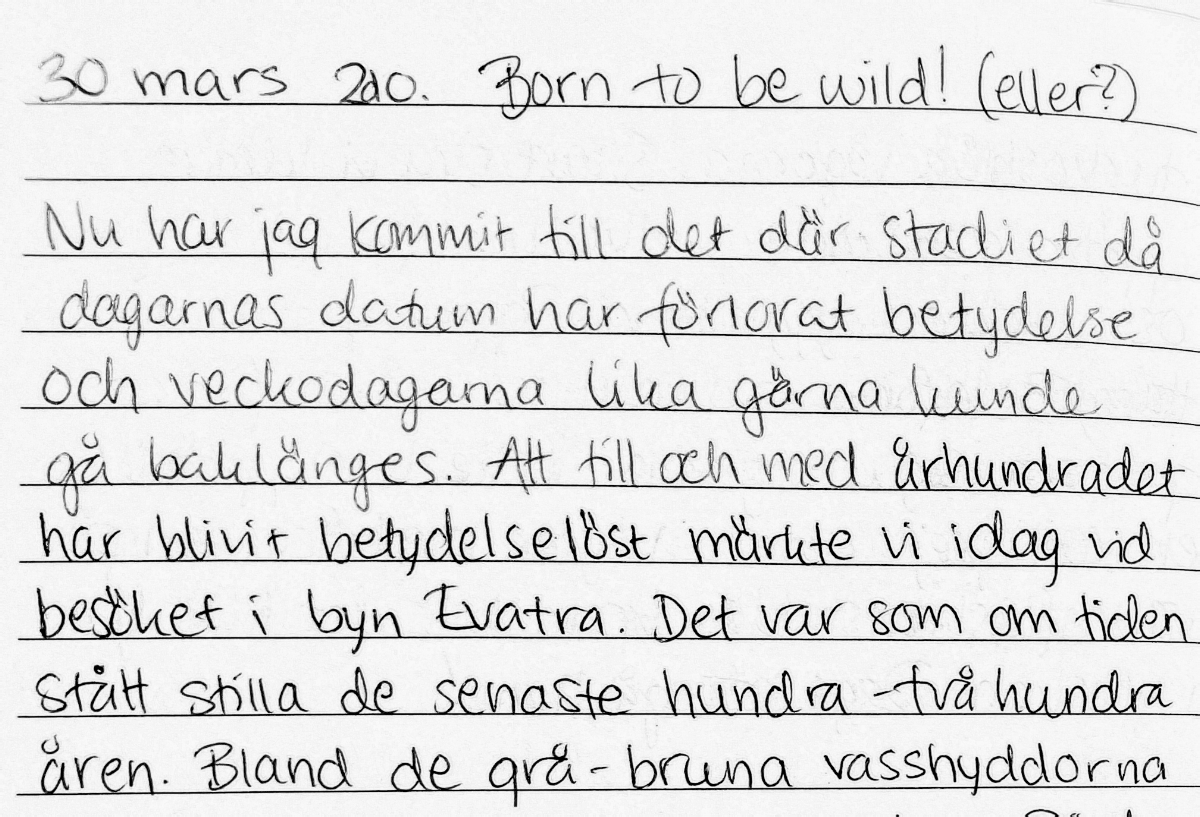 30 mars 2010. Born to be wild! (eller?)
Nu har jag kommit till det där stadiet då
dagarnas datum har förlorat betydelse
och veckodagarna lika gärna kunde
gå baklänges. Att till och med århundradet
har blivit betydelselöst märkte vi idag vid
besöket i byn Evatra. Det var som om tiden
stått stilla de senaste hundra-två hundra
åren. Bland de grå-bruna vasshyddorna